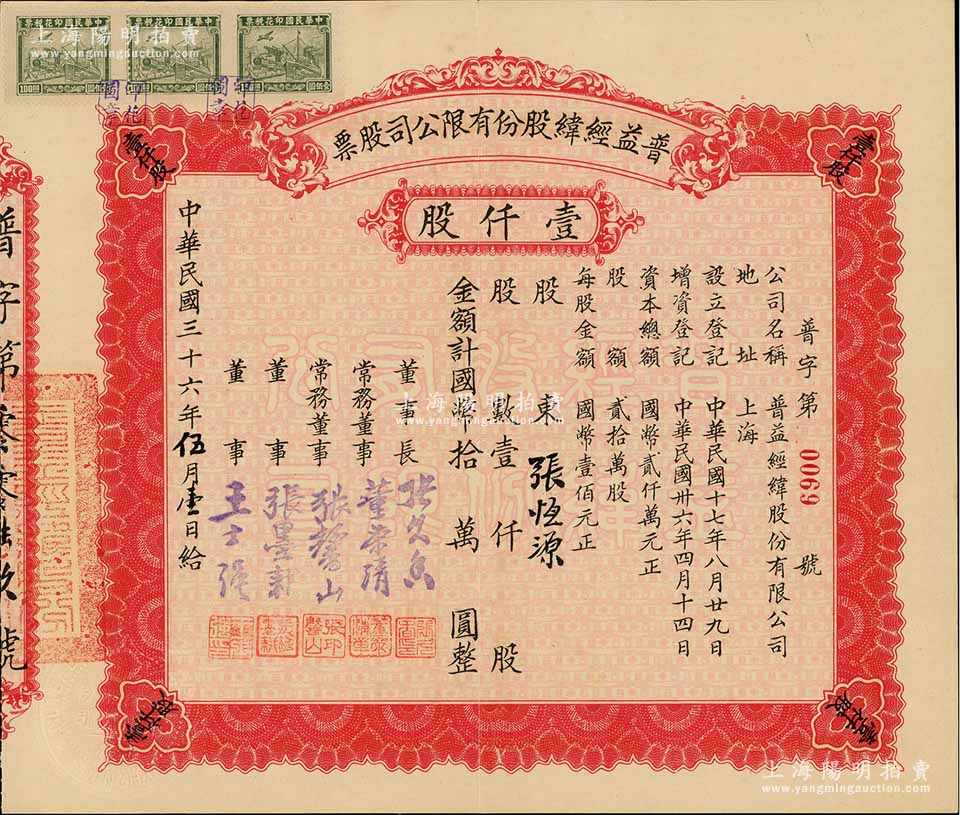 上海陽明拍賣
www.yangmingauction.com
中華民國印花稅票
中華民國印花稅票
中華民國印花稅票
100圓
普益經緯股份有限公司股票
壹仟股
壹仟股
壹仟股
普字第 0069 號
公司名稱 普益經緯股份有限公司
地址 上海
設立登記 中華民國十七年八月廿九日
增資登記 中華民國卅六年四月十四日
資本總額 國幣貳仟萬元正
股額 貳拾萬股
每股金額 國幣壹佰元正
股東 張恆源
股數 壹仟股
金額計國幣拾萬圓整
董事長
常務董事
常務董事 張馨山
董事 張墨耕
董事 王士強
中華民國三十六年伍月壹日給
普字第零零陸玖號
上海陽明拍賣
www.yangmingauction.com
上海陽明拍賣
www.yangmingauction.com